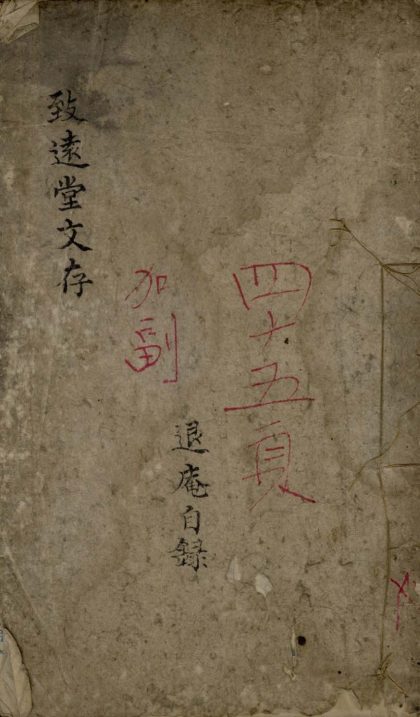 致遠堂文存
退庵自録
四十五頁
加副